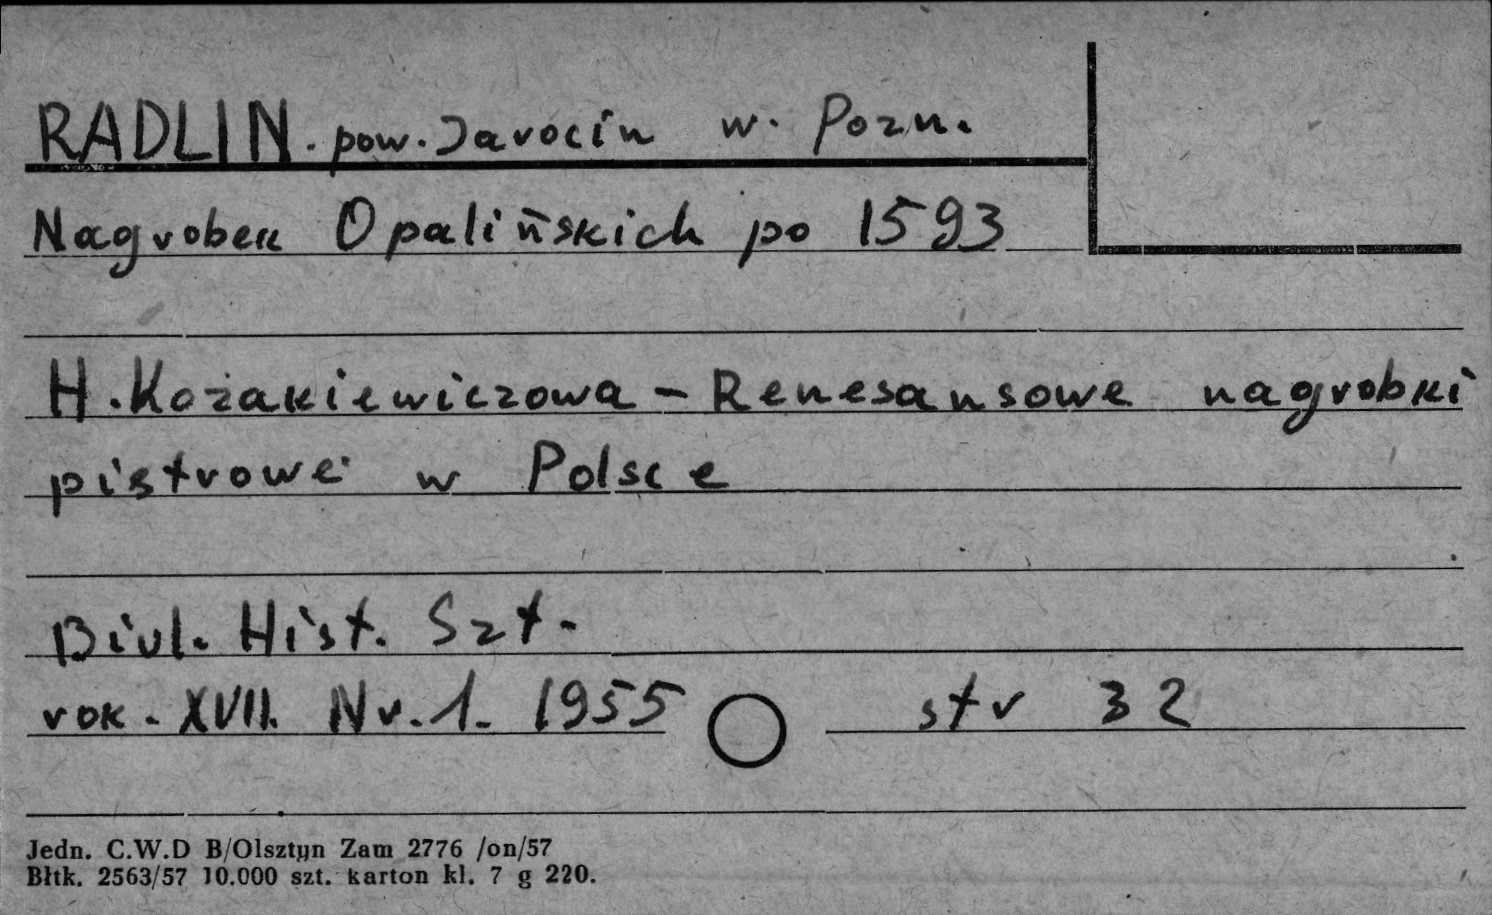 RADLIN. pow. Jarocin w. Pozn.
Nagrobek Opalińskich po 1593
H. Kozakiewiczowa - Renesansowe nagrobki
piętrowe w Polsce
Biul. Hist. Szt.
rok. XVII. Nr. 1. 1955 str 32
Jedn. C.W.D B/Olsztyn Zam 2776 /on/57
Błtk. 2563/57 10.000 szt. karton kl. 7 g 220.